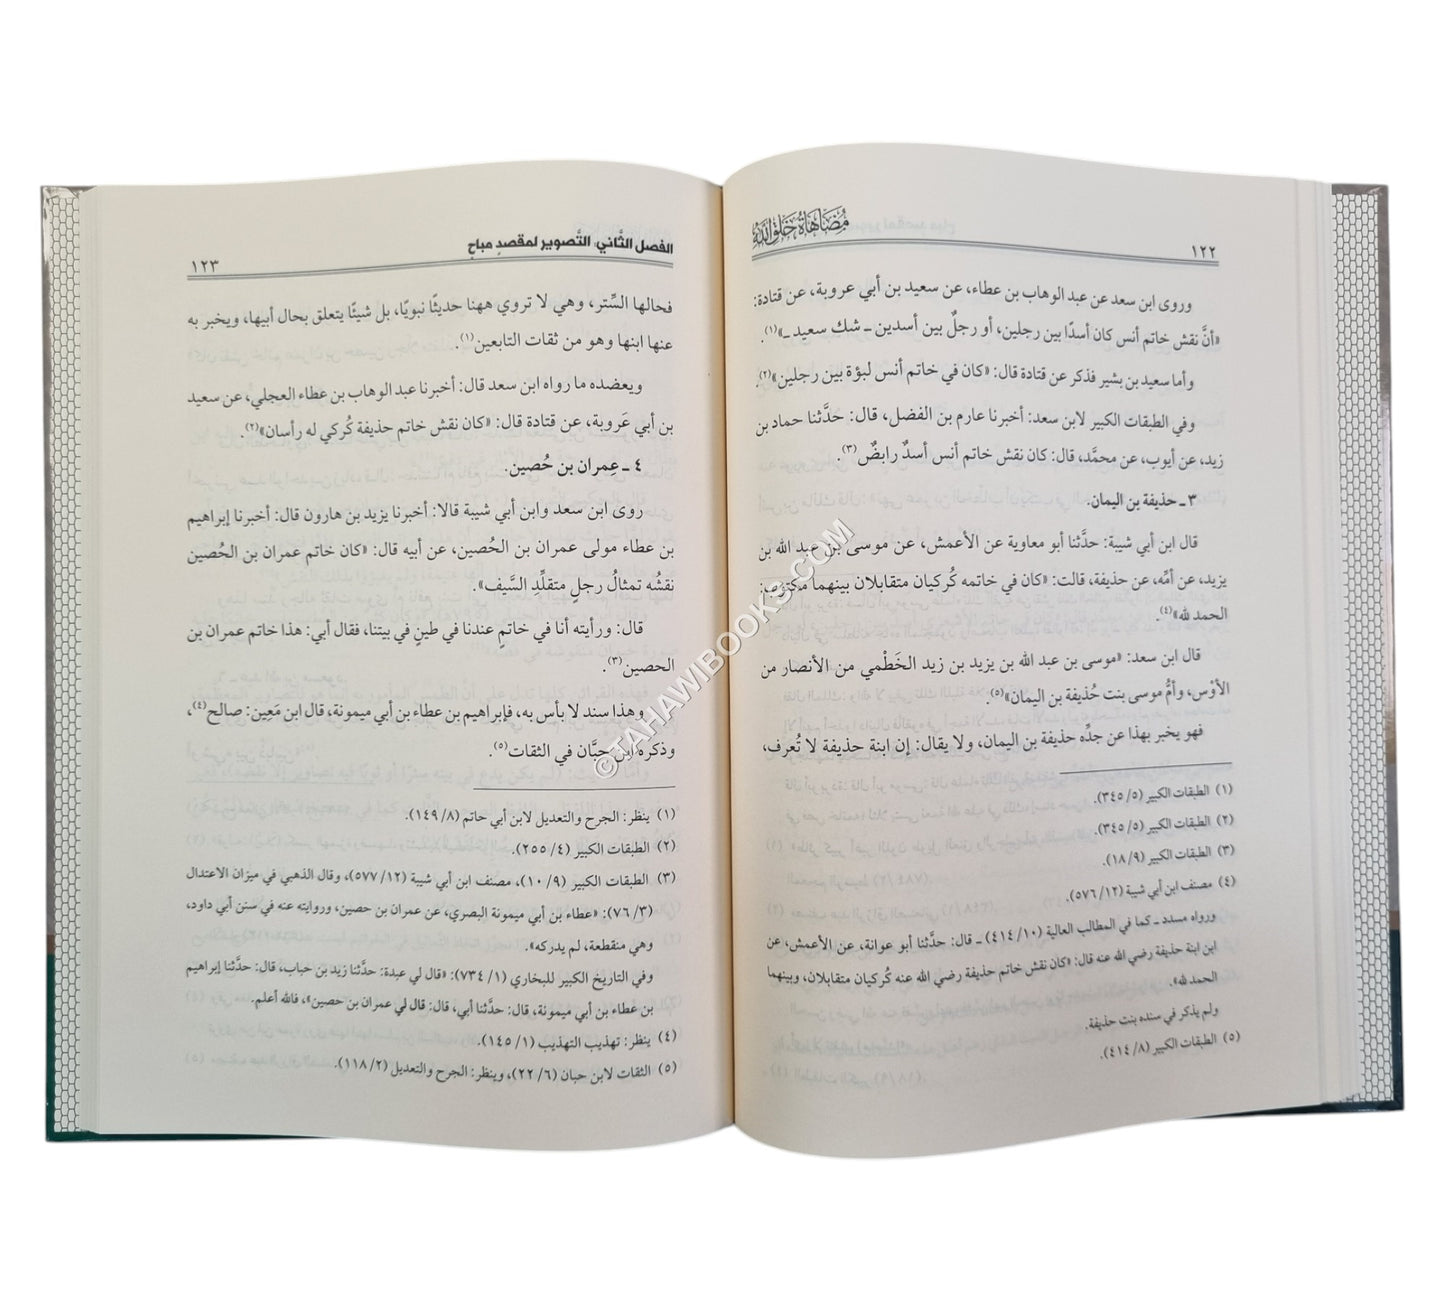 ١٢٢
مُضَاهَاةُ خَلْقِ اللهِ
وروى ابن سعد عن عبد الوهاب بن عطاء، عن سعيد بن أبي عروبة، عن قتادة:
«أنَّ نقش خاتم أنس كان أسدًا بين رجلين، أو رجلٌ بين أسدين ـ شك سعيد ـ»(١).
وأما سعيد بن بشير فذكر عن قتادة قال: «كان في خاتم أنس لبؤة بين رجلين»(٢).
وفي الطبقات الكبير لابن سعد: أخبرنا عارم بن الفضل، قال: حدَّثنا حماد بن
زيد، عن أيوب، عن محمَّد، قال: كان نقش خاتم أنس أسدٌ رابضٌ(٣).
٣ ـ حذيفة بن اليمان.
قال ابن أبي شيبة: حدَّثنا أبو معاوية عن الأعمش، عن موسى بن عبد الله بن
يزيد، عن أمِّه، عن حذيفة، قالت: «كان في خاتمه كُركيان متقابلان بينهما مكتوب:
الحمد لله»(٤).
قال ابن سعد: «موسى بن عبد الله بن يزيد بن زيد الخَطْمي من الأنصار من
الأوْس، وأمُّ موسى بنت حُذيفة بن اليمان»(٥).
فهو يخبر بهذا عن جدِّه حذيفة بن اليمان، ولا يقال: إن ابنة حذيفة لا تُعرف،
(١) الطبقات الكبير (٥/ ٣٤٥).
(٢) الطبقات الكبير (٥/ ٣٤٥).
(٣) الطبقات الكبير (٩/ ١٨).
(٤) مصنف ابن أبي شيبة (١٢/ ٥٧٦).
ورواه مسدد ـ كما في المطالب العالية (١٠/ ٤١٤) ـ قال: حدَّثنا أبو عوانة، عن الأعمش، عن
ابن ابنة حذيفة رضي الله عنه قال: «كان نقش خاتم حذيفة رضي الله عنه كُركيان متقابلان، وبينهما
الحمد لله».
ولم يذكر في سنده بنت حذيفة.
(٥) الطبقات الكبير (٨/ ٤١٤).
الفصل الثَّاني: التَّصوير لمقصدٍ مباحٍ
١٢٣
فحالها السِّتر، وهي لا تروي ههنا حديثًا نبويًا، بل شيئًا يتعلق بحال أبيها، ويخبر به
عنها ابنها وهو من ثقات التابعين(١).
ويعضده ما رواه ابن سعد قال: أخبرنا عبد الوهاب بن عطاء العجلي، عن سعيد
بن أبي عَروبة، عن قتادة قال: «كان نقش خاتم حذيفة كُركي له رأسان»(٢).
٤ ـ عِمران بن حُصين.
روى ابن سعد وابن أبي شيبة قالا: أخبرنا يزيد بن هارون قال: أخبرنا إبراهيم
بن عطاء مولى عمران بن الحُصين، عن أبيه قال: «كان خاتم عمران بن الحُصين
نقشُه تمثالُ رجلٍ متقلِّدِ السَّيف».
قال: ورأيته أنا في خاتمٍ عندنا في طينٍ في بيتنا، فقال أبي: هذا خاتم عمران بن
الحصين(٣).
وهذا سند لا بأس به، فإبراهيم بن عطاء بن أبي ميمونة، قال ابن مَعِين: صالح(٤)،
وذكره ابن حبَّان في الثقات(٥).
(١) ينظر: الجرح والتعديل لابن أبي حاتم (٨/ ١٤٩).
(٢) الطبقات الكبير (٤/ ٢٥٥).
(٣) الطبقات الكبير (٩/ ١٠)، مصنف ابن أبي شيبة (١٢/ ٥٧٧)، وقال الذهبي في ميزان الاعتدال
(٣/ ٧٦): «عطاء بن أبي ميمونة البصري، عن عمران بن حصين، وروايته عنه في سنن أبي داود،
وهي منقطعة، لم يدركه».
وفي التاريخ الكبير للبخاري (١/ ٧٣٤): «قال لي عبدة: حدَّثنا زيد بن حباب، قال: حدَّثنا إبراهيم
بن عطاء بن أبي ميمونة، قال: حدَّثنا أبي، قال: قال لي عمران بن حصين»، فالله أعلم.
(٤) ينظر: تهذيب التهذيب (١/ ١٤٥).
(٥) الثقات لابن حبان (٦/ ٢٢)، وينظر: الجرح والتعديل (٢/ ١١٨).
©TAHAWIBOOKS.COM